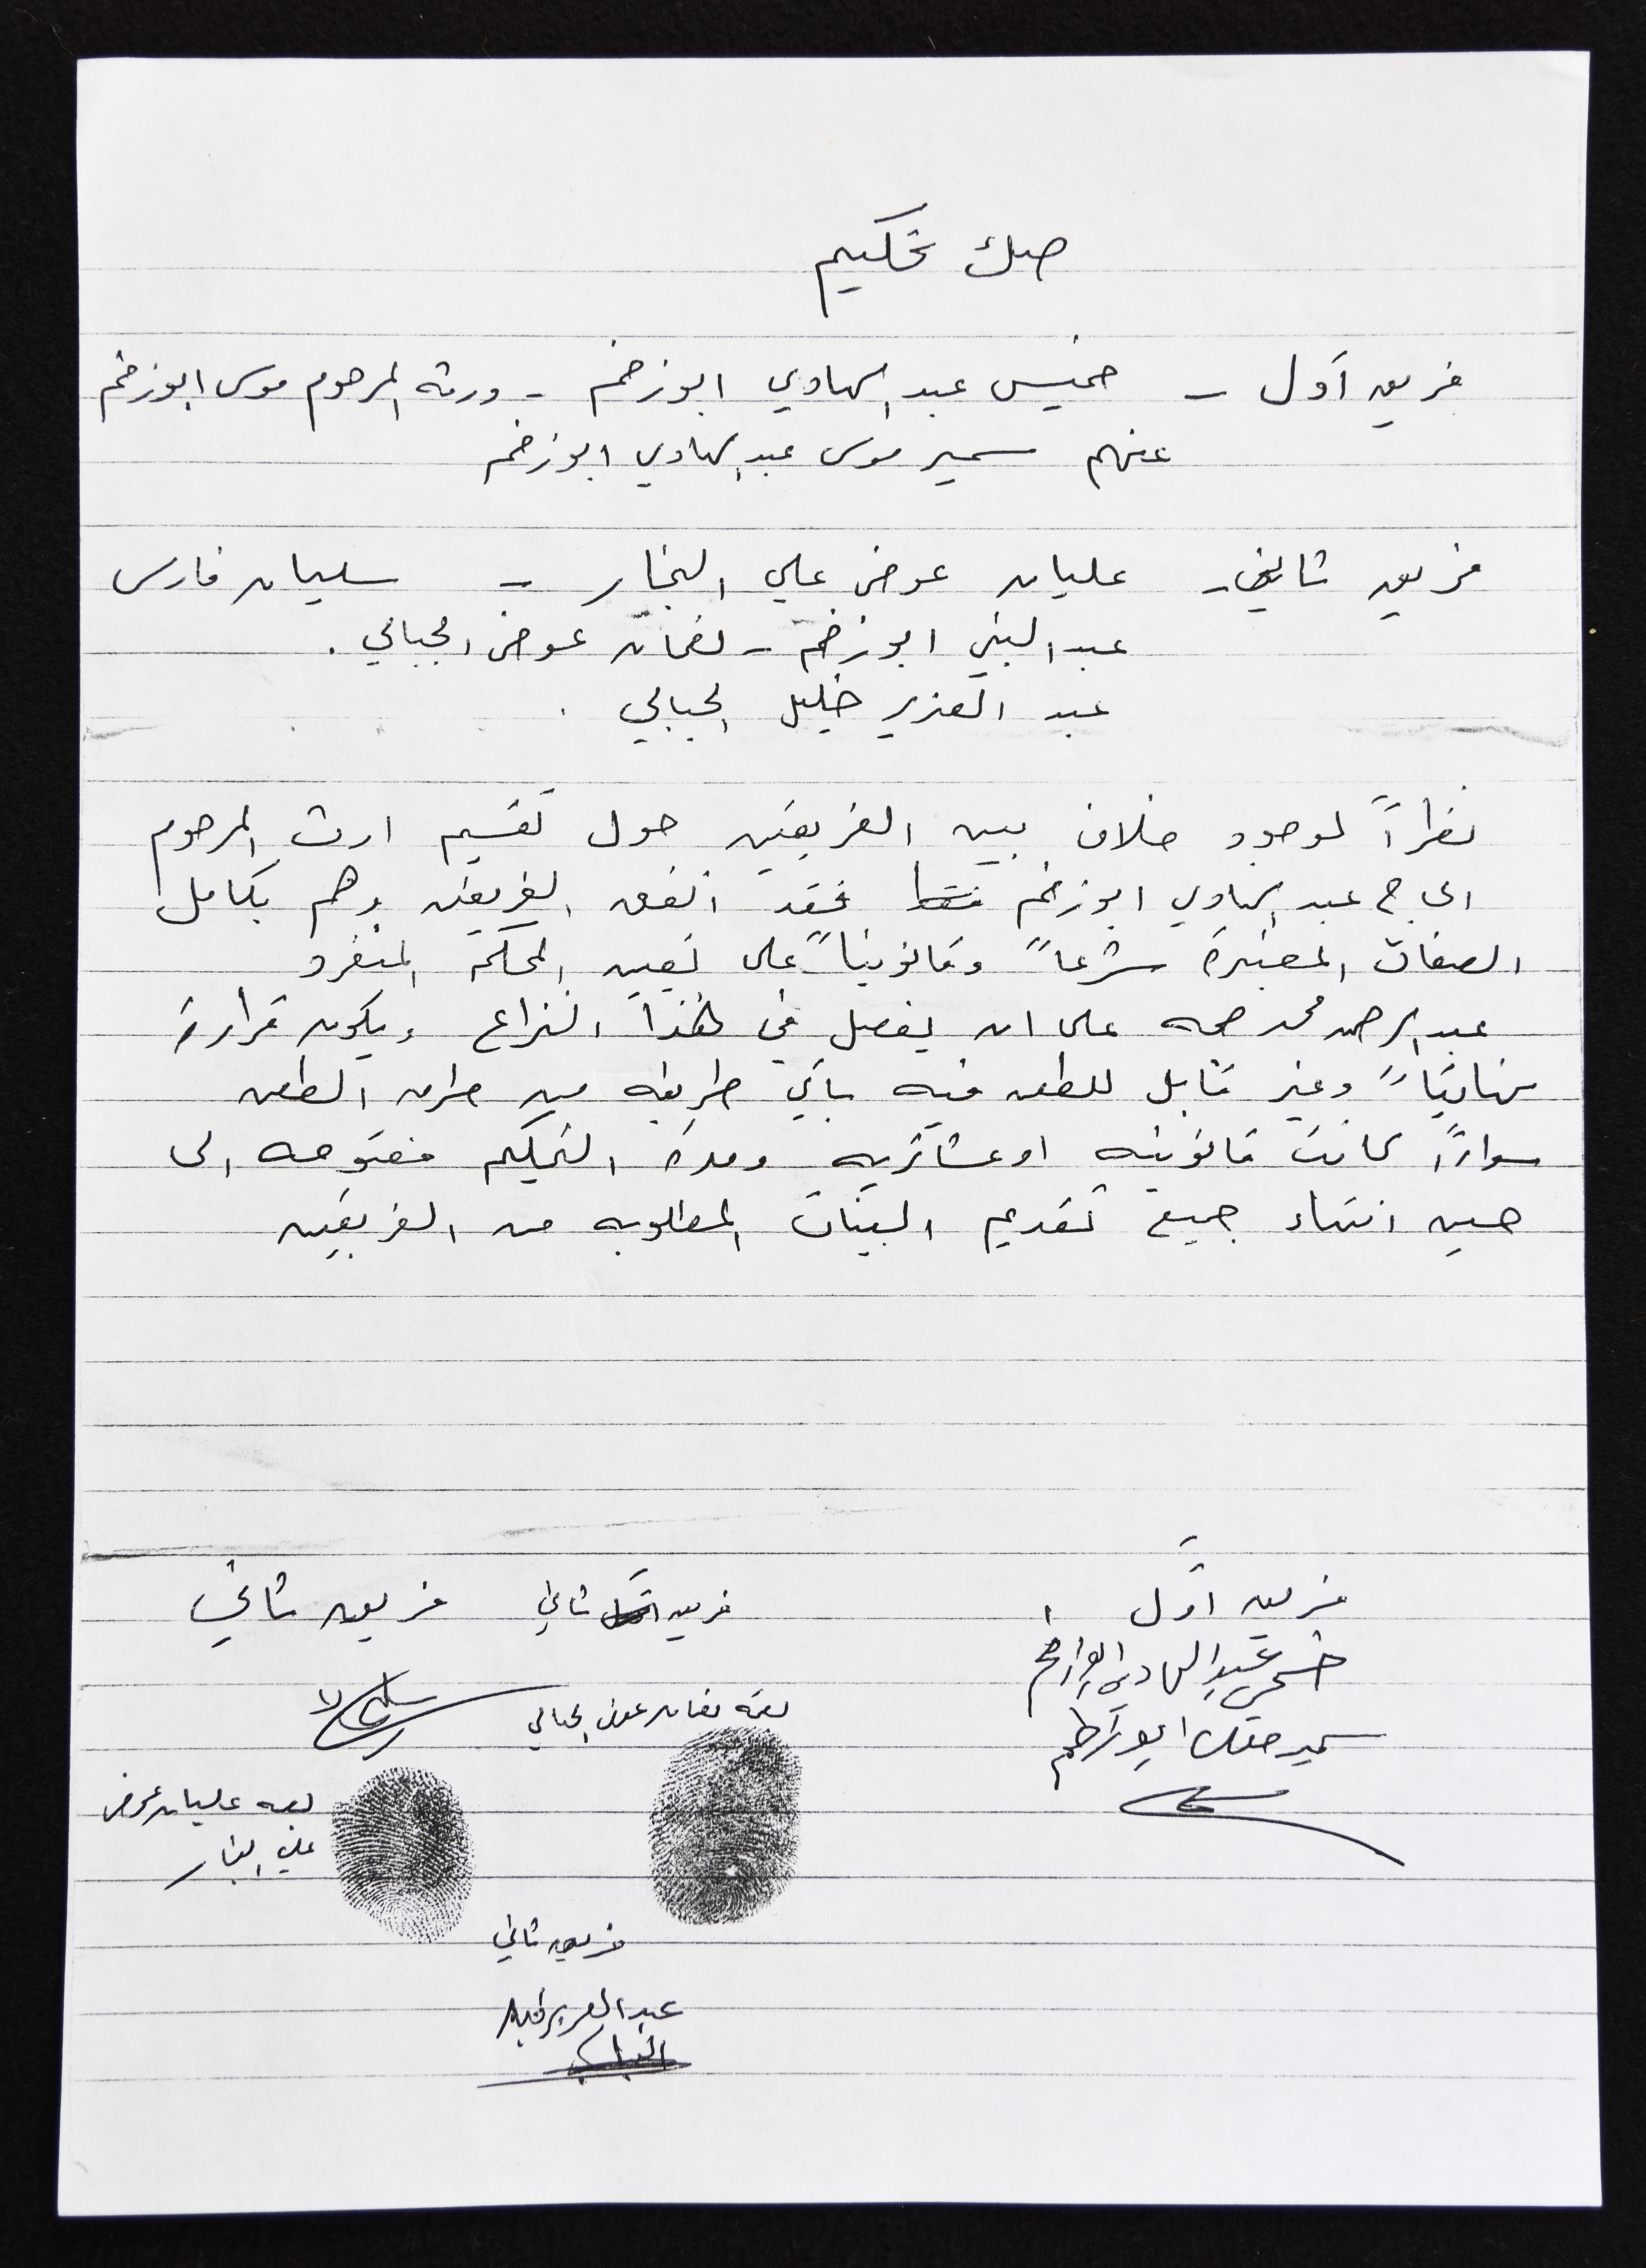 صك تحكيم
فريق أول - خميس عبد الهادي ابوزخم - ورثة المرحوم موسى ابوزخم
عنهم سمير موسى عبد الهادي ابوزخم
فريق ثاني - عليان عوض علي النجار - سليمان فارس
عبد النبي ابوزخم - نعمان عوض الجبالي .
عبد العزيز خليل الجبالي .
نظراً لوجود خلاف بين الفريقين حول تقسيم ارث المرحوم
الحاج عبد الهادي ابوزخم فقد اتفق الفريقين وهم بكامل
الصفات المعتبرة شرعاً وقانونياً على تعيين المحكم المنفرد
عبد الرحمن محمد على ان يفصل في هذا النزاع ويكون قراره
نهائياً وغير قابل للطعن فيه بأي طريقه من طرق الطعن
سواءاً كانت قانونيه او عشائريه ومدة التحكيم مفتوحه الى
حين انتهاء جميع تقديم البينات المطلوبه من الفريقين
فريق أول
فريق ثاني
فريق ثاني
خميس عبد الهادي ابوزخم
سمير ابوزخم
بصمة نعمان عوض الجبالي
بصمه عليان عوض
علي النجار
فريق ثاني
عبد العزيز خليل
الجبالي